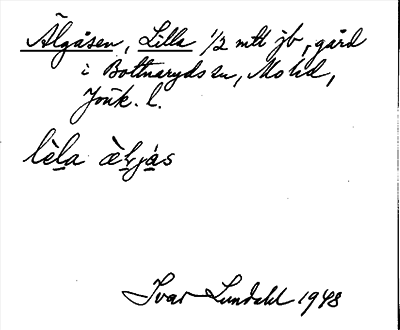 Älgåsen, Lilla 1/2 mtl jb, gård
i Bottnaryds sn, Mo hd,
Jönk. l.
lèla
Ivar Lundahl 1948